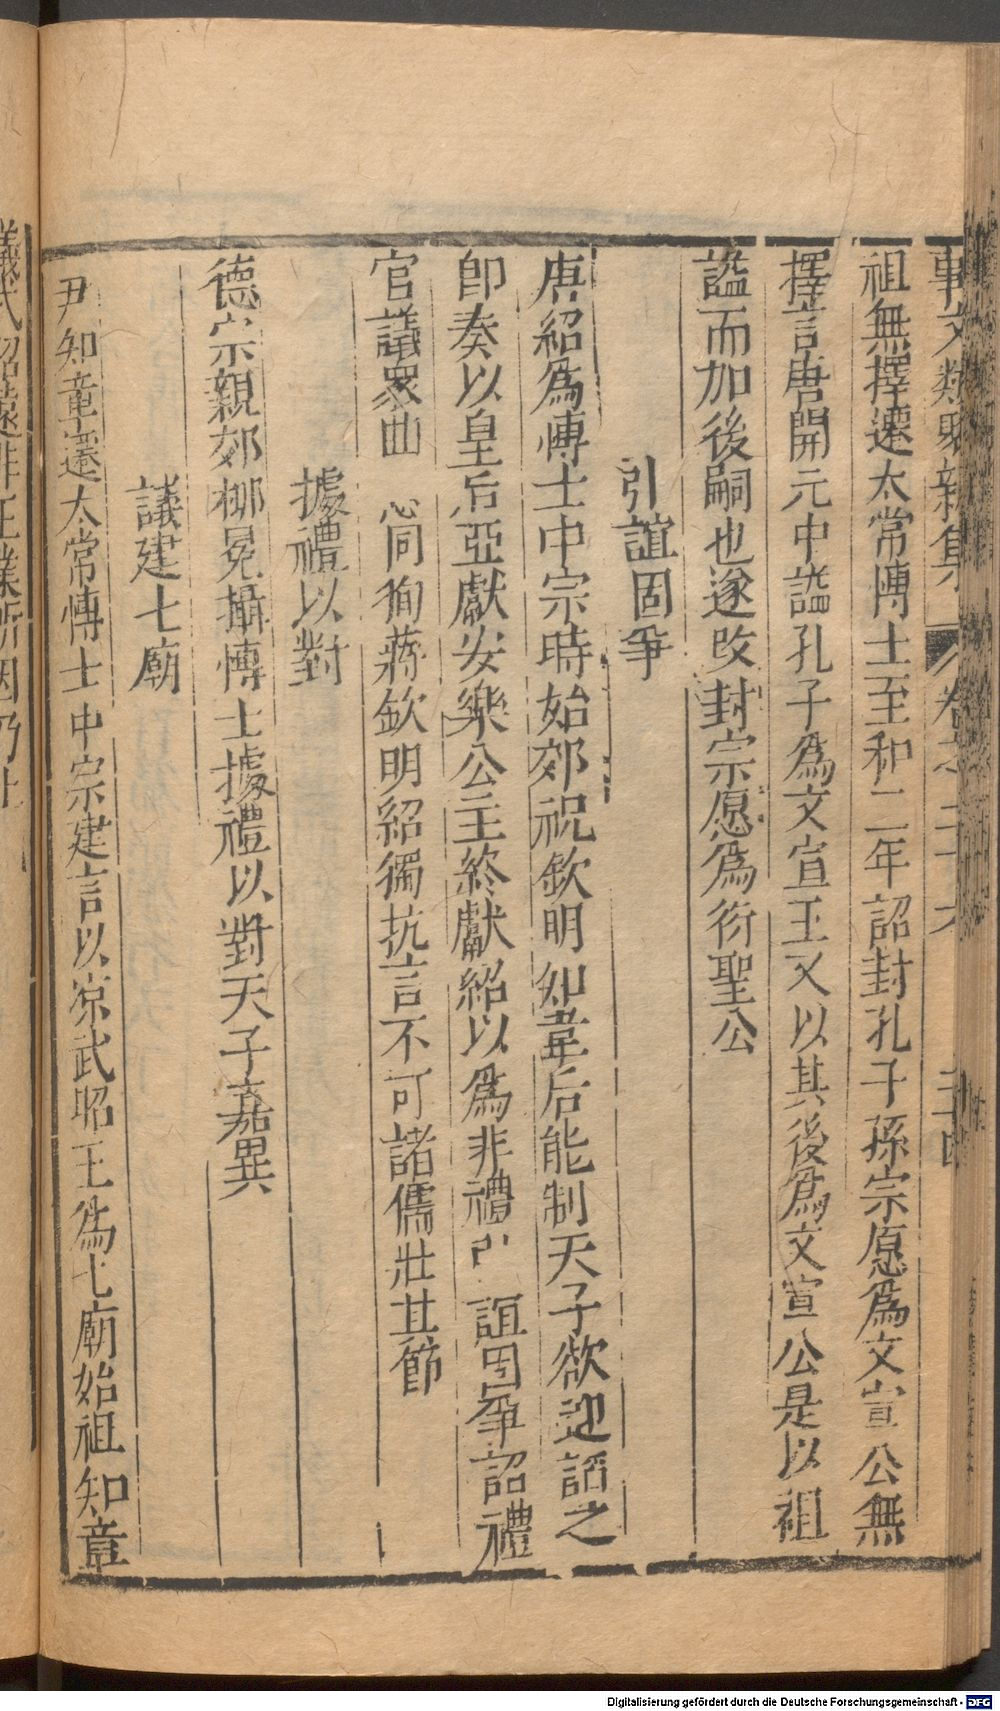 事文類聚新集 卷之三十六 三四
祖無擇遷太常博士至和二年詔封孔子孫宗愿爲文宣公無
擇言唐開元中諡孔子爲文宣王又以其後爲文宣公是以祖
諡而加後嗣也遂改封宗愿爲衍聖公
引誼固爭
唐紹爲博士中宗時始郊祝欽明知韋后能制天子欲迎謟之
卽奏以皇后亞獻安樂公主終獻紹以爲非禮引誼固爭詔禮
官議衆曲 同徇蔣欽明紹獨抗言不可諸儒壯其節
據禮以對
德宗親郊柳冕攝博士據禮以對天子嘉異
議建七廟
尹知章遷太常博士中宗建言以凉武昭王爲七廟始祖知章
議武昭遠非王業所因乃止
Digitalisierung gefördert durch die Deutsche Forschungsgemeinschaft - DFG